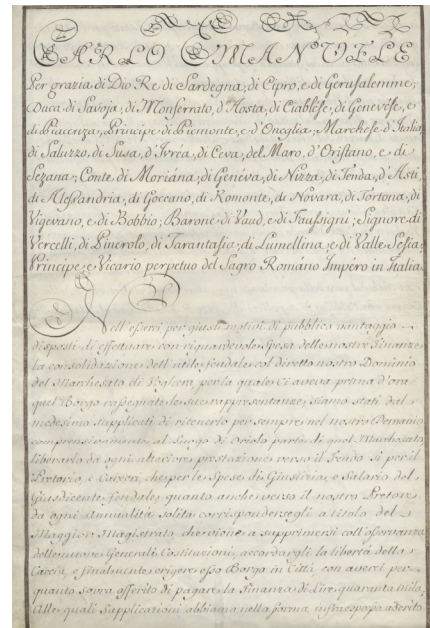 CARLO EMANUELE
Per grazia di Dio Re di Sardegna, di Cipro, e di Gerusalemme,
Duca di Savoja, di Monferrato, d'Aosta, di Ciablese, di Genevese, e
di Piacenza, Principe di Piemonte, e d'Oneglia, Marchese d'Italia,
di Saluzzo, di Susa, d'Ivrea, di Ceva, del Maro, d'Oristano, e di
Sezana, Conte di Moriana, di Geneva, di Nizza, di Tenda, d'Asti,
di Alessandria, di Goceano, di Romonte, di Novara, di Tortona, di
Vigevano, e di Bobbio; Barone di Vaud, e di Faussigni; Signore di
Vercelli, di Pinerolo, di Tarantasia, di Lumellina, e di Valle Sesia,
Principe, e Vicario perpetuo del Sagro Romano Impero in Italia.
Nell'esserci per giusti motivi di pubblico vantaggio
disposti di effettuare con riguardevole spesa delle nostre Finanze
la consolidazione dell'utile feudale col diretto nostro Dominio
del Marchesato di Voghera per la quale Ci aveva prima d'ora
quel Borgo rassegnate le sue rappresentanze, siamo stati dal
medesimo supplicati di ritenerlo per sempre nel nostro Demanio
comprensivamente al Luogo di Oriolo parte di quel Marchesato
liberarlo da ogni ulteriore prestazione verso il Feudo sì per il
Pretorio, e Carceri, che per le Spese di Giustizia, e Salario del
Giusdicente feudale, quanto anche verso il nostro Pretore
da ogni Annualità solita corrispondersegli a titolo del
Maggior Magistrato, che viene a supprimersi coll'osservanza
delle nuove Generali Costituzioni, accordargli la libertà della
Caccia, e finalmente erigere esso Borgo in Città, con averci per
quanto sovra offerito di pagare la Finanza di Lire quaranta mila,
Alle quali Supplicazioni abbiamo nella forma infraespressa aderito